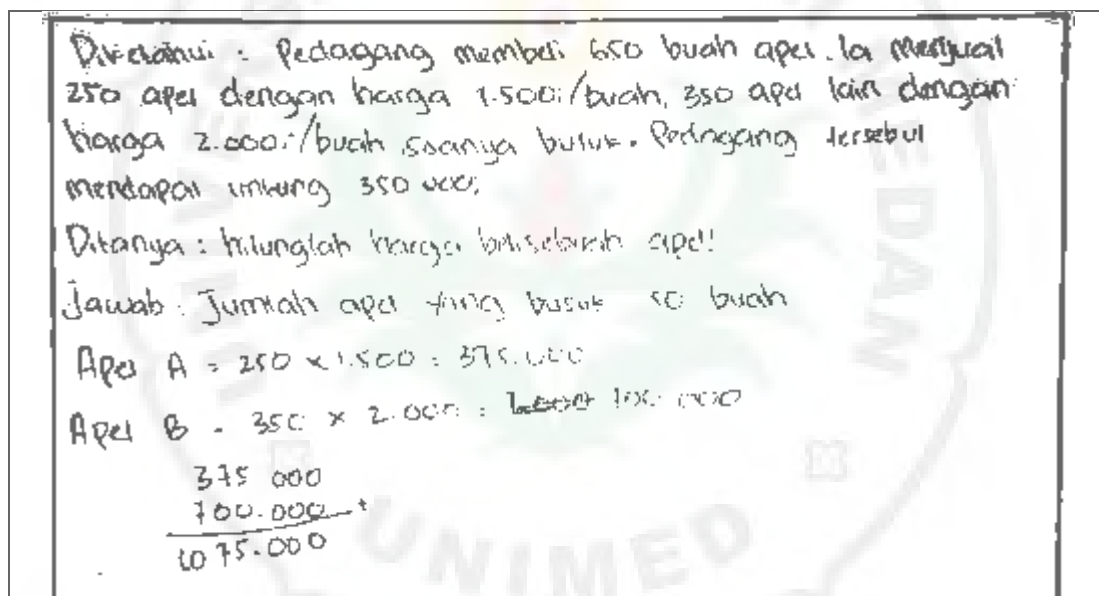 Diketahui : Pedagang membeli 650 buah apel. Ia menjual
250 apel dengan harga 1.500;/buah, 350 apel lain dengan
harga 2.000;/buah sisanya busuk. Pedagang tersebut
mendapat untung 350 000;
Ditanya : hitunglah harga beli sebuah apel!
Jawab : Jumlah apel yang busuk 50 buah
Apel A = 250 x 1.500 = 375.000
Apel B = 350 x 2.000 = 700.000
375 000
700.000 +
1075.000
UNIMED